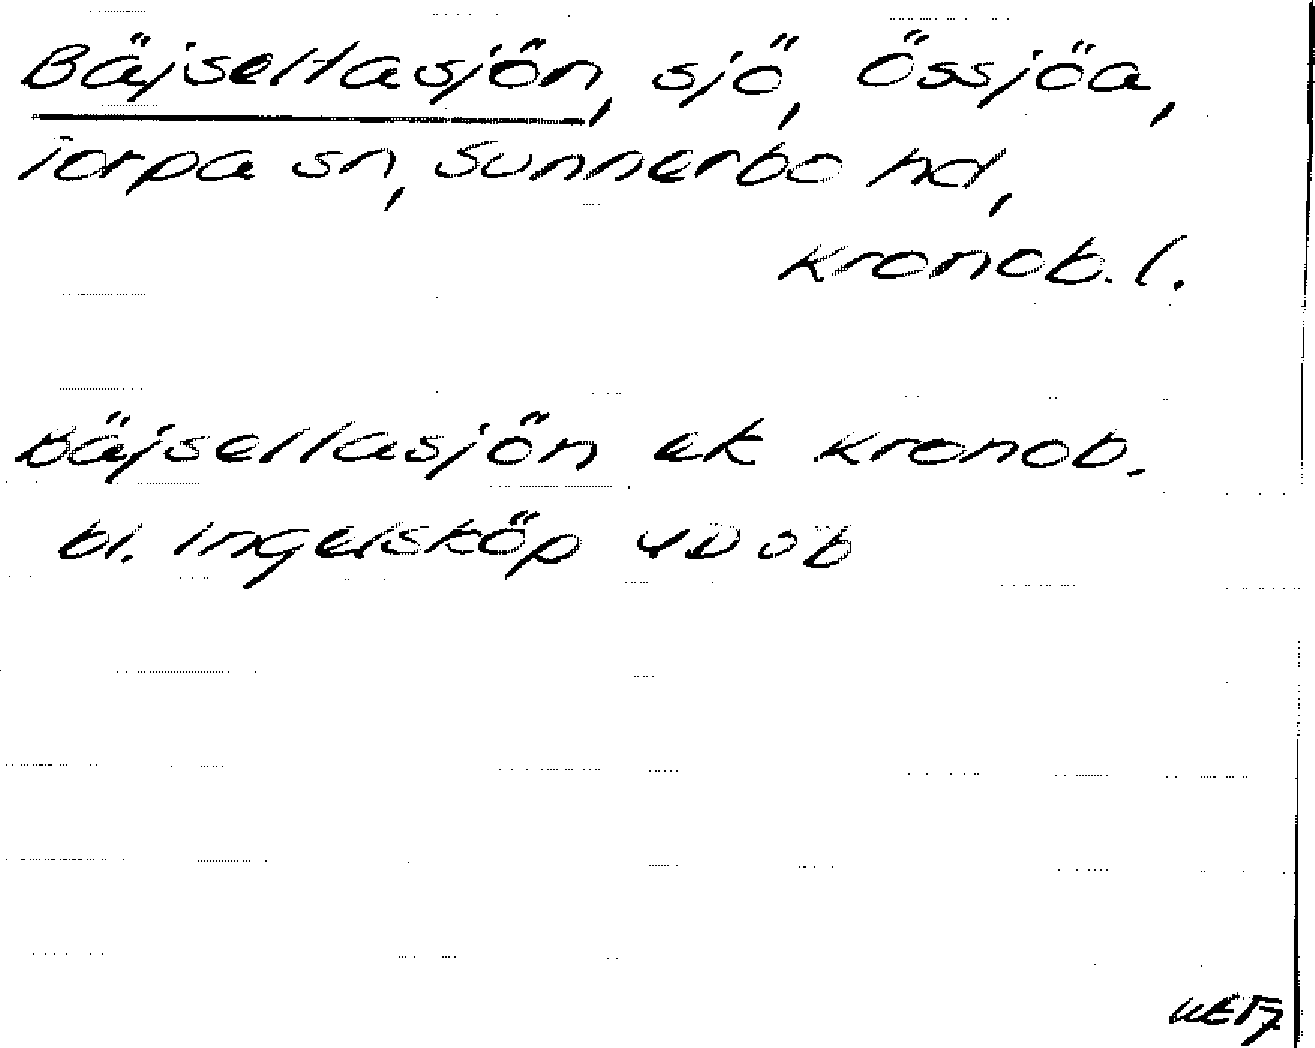 Bäjsellasjön, sjö, Össjöa,
Torpa sn, Sunnerbo hd,
Kronob. l.
Bäjsellasjön ek Kronob.
bl. Ingelsköp 4D 0b